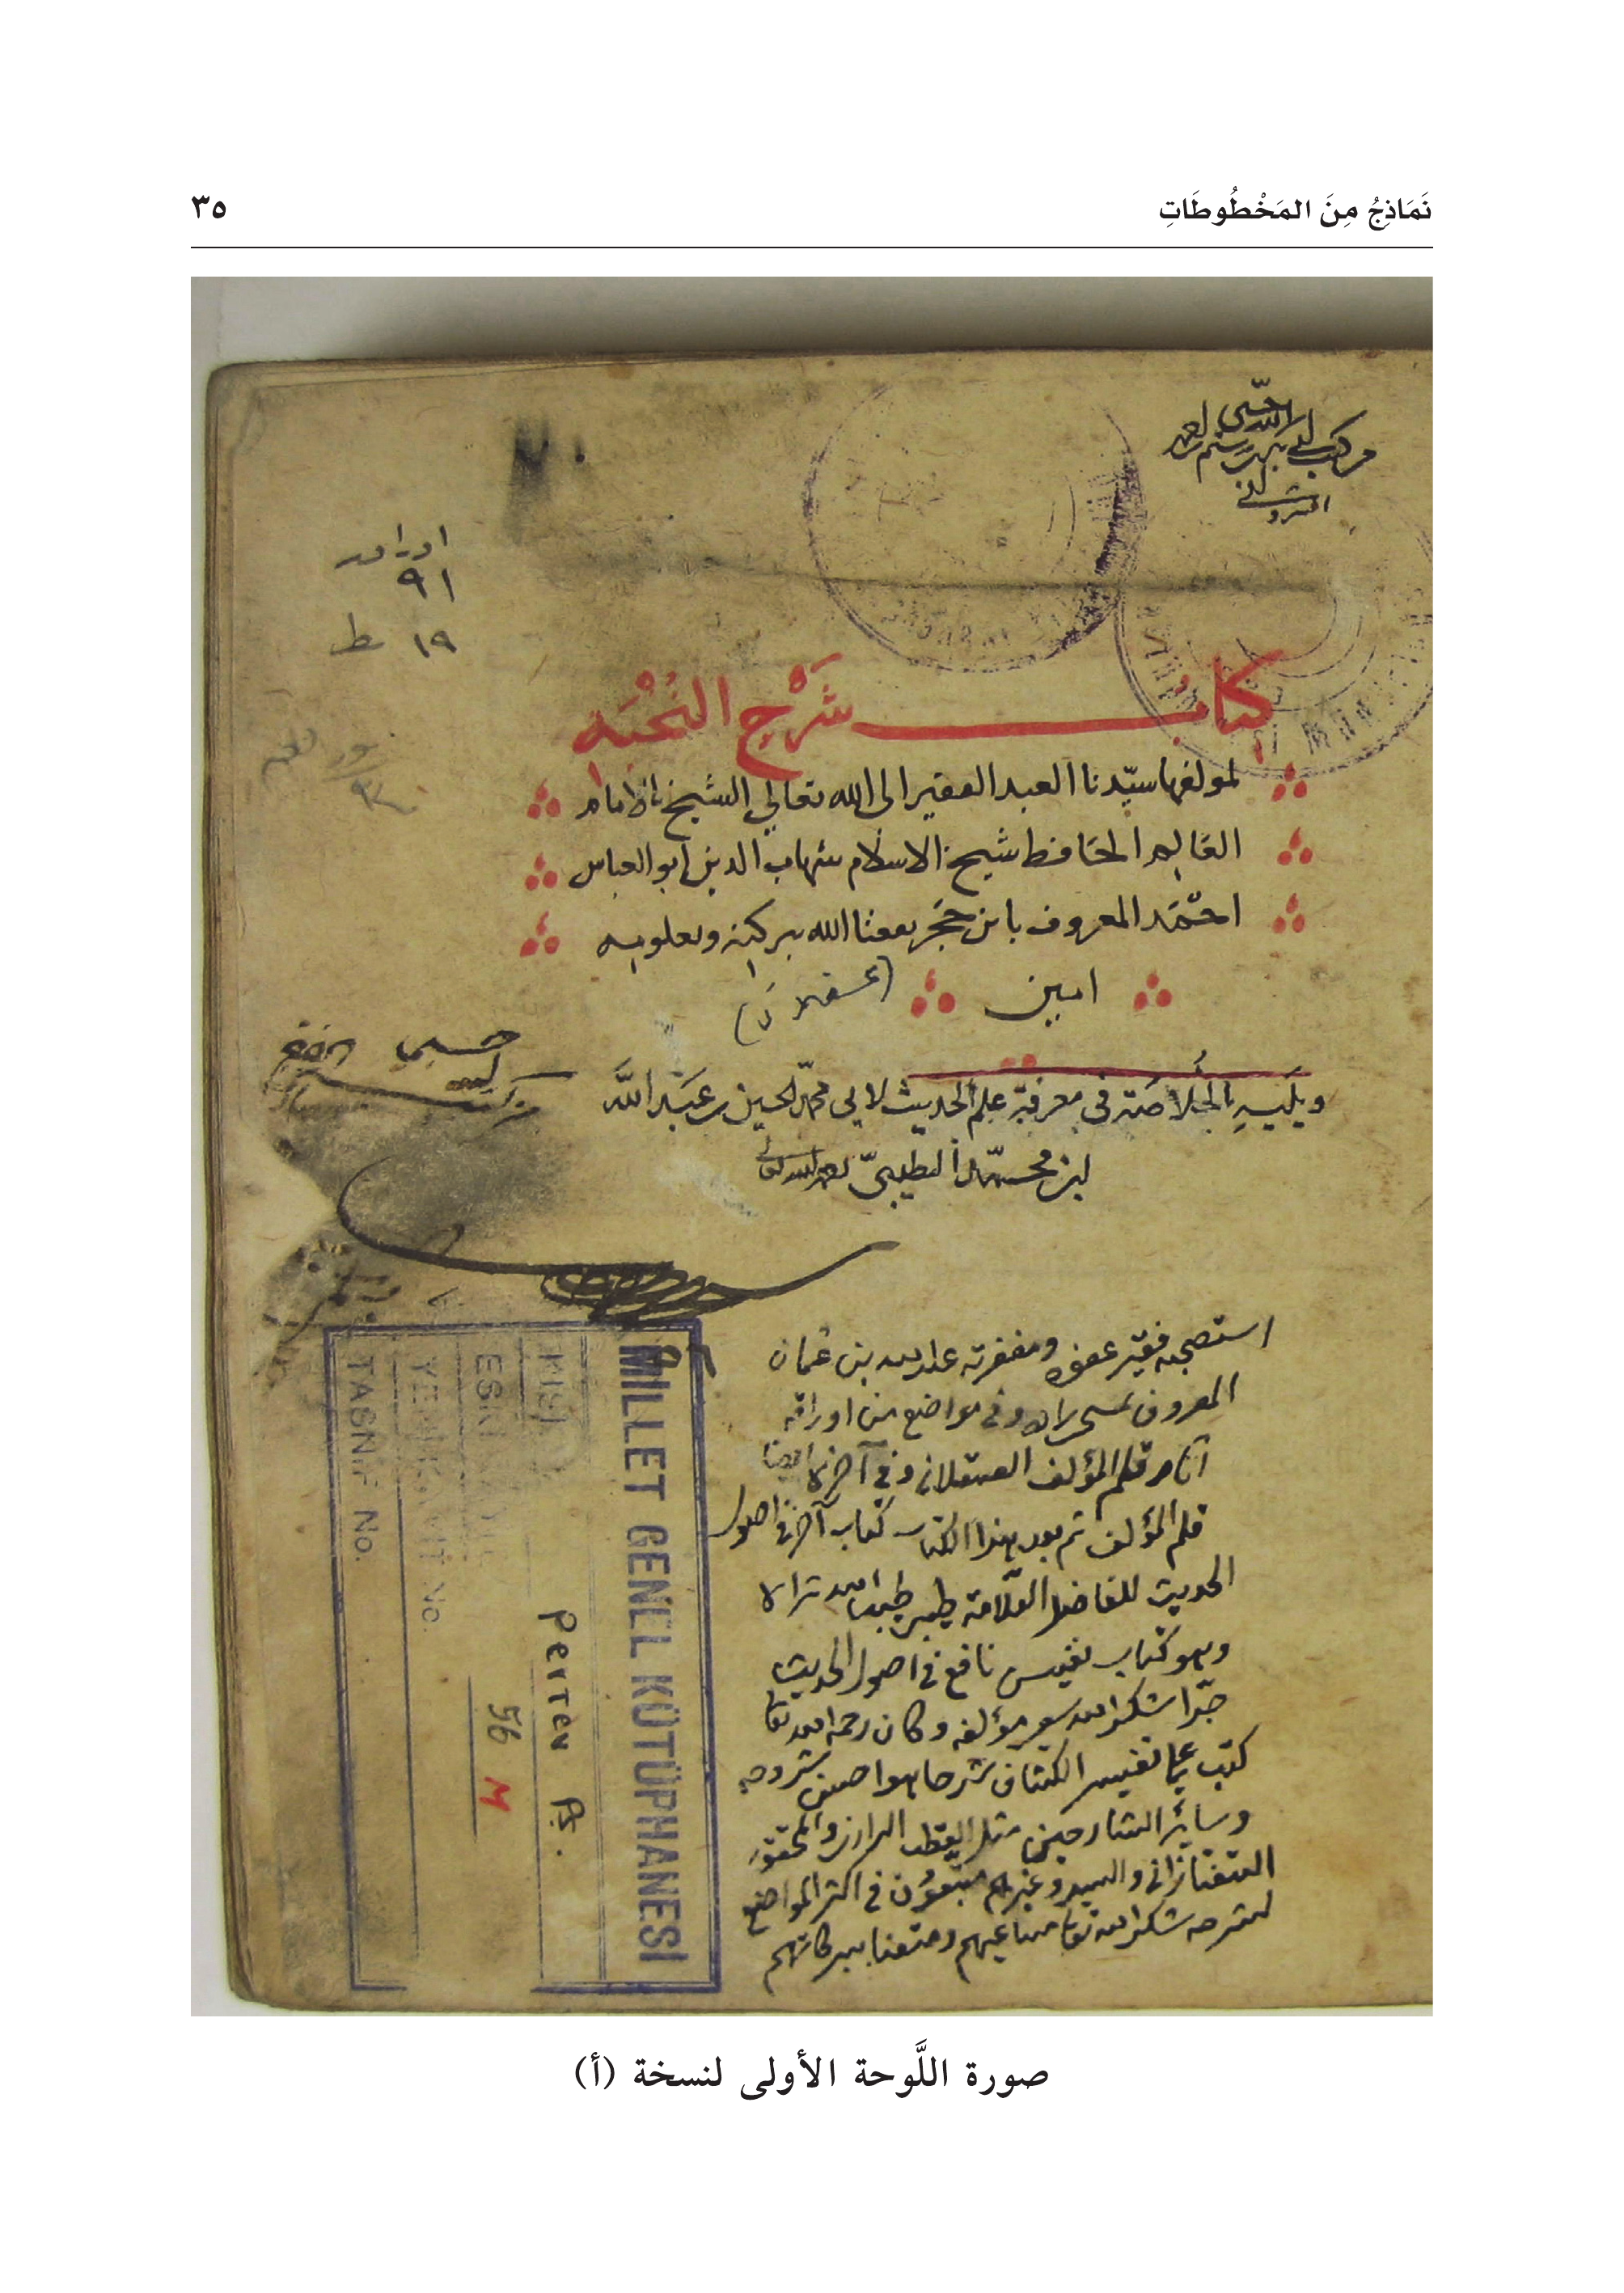 نَمَاذِجُ مِنَ المَخْطُوطَاتِ
٣٥
اوراقه
٩١
١٩ سط
كتابُ شَرْح النُخْبَه
لمولفها سيّدنا العبد الفقير الى الله تعالى الشيخ الامام
العَالِم الحَافظ شيخ الاسلام شهاب الدين ابو العباس
احمَد المعروف بابن حَجَر نفعنا الله ببركته وبعلومه
امين
(عسقلانى)
ويَليَهِ الخُلاصَة فى معرفة علم الحديث لابى محمّد الحسين بن عَبَد اللَّه
ابن محمّد الطيبىّ رحمه الله تعالى
استصحبه فقير عفوه ومغفرته عبد الله بن عثمان
المعروف وفى مواضع من اوراقه
آثار قلم المؤلف العسقلانى وفى آخرها ايضا
قلم المؤلف ثم بعد هذا الكتاب كتاب آخر فى اصول
الحديث للفاضل العلّامة طيبى طيب الله ثراه
وهو كتاب نفيس نافع فى اصول الحديث
جدّا شكر الله سعى مؤلفه وكان رحمه الله تعا
كتب على تفسير الكشاف شرحا هو احسن شروحه
وسائر الشارحين مثل القطب الرازى والمحقق
التفتازانى والسيد وغيرهم متبعون فى اكثر المواضع
لشرحه شكر الله تعا مساعيهم ومتعنا ببركاتهم
MILLET GENEL KÜTÜPHANESİ
Pertev Pş.
ESKİ
56 M
YENİ KAYIT No.
TASNİF No.
صورة اللَّوحة الأولى لنسخة (أ)